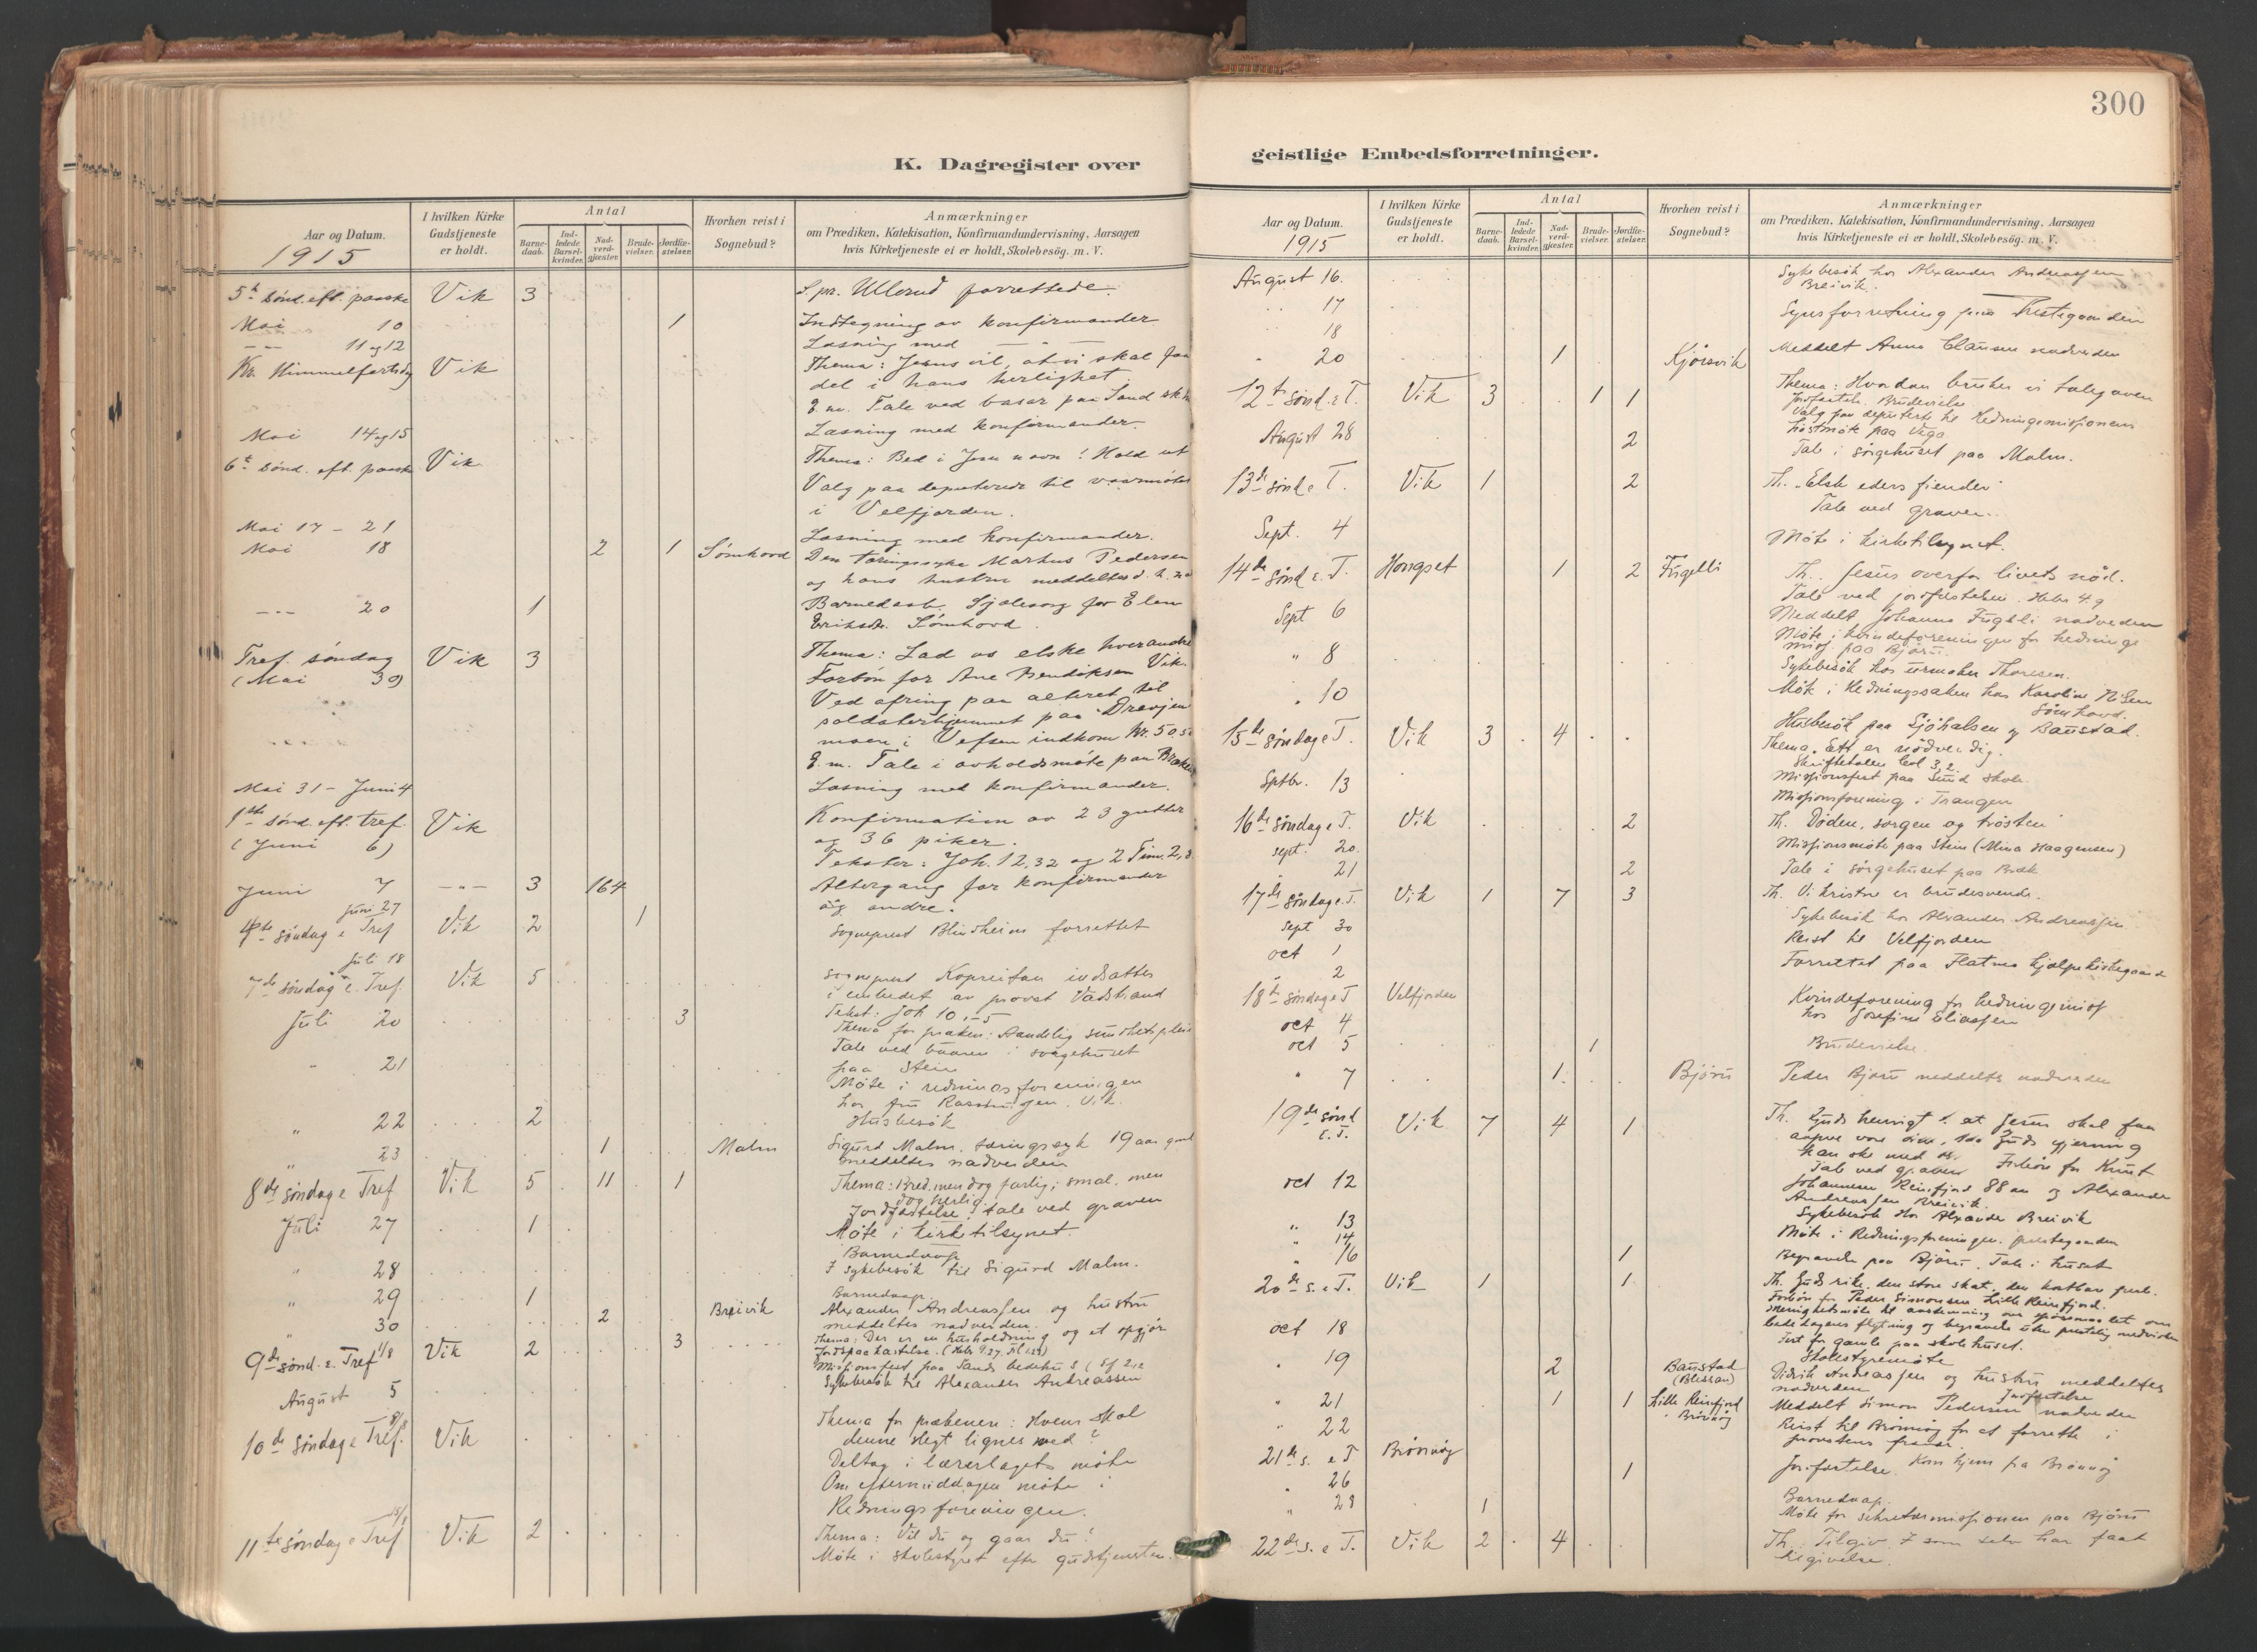 300
K. Dagregister over
geistlige Embedsforretninger.
Aar og Datum.
1915
I hvilken Kirke Gudstjeneste er holdt.
Antal
Barne-daab.
Ind-ledede Barsel-kvinder.
Nad-verd-gjæster.
Brude-vielser.
Jordfæ-stelser.
Hvorhen reist i Sognebud?
Anmærkninger
om Prædiken, Katekisation, Konfirmandundervisning, Aarsagen
hvis Kirketjeneste ei er holdt, Skolebesøg. m. V.
5te sönd. eft. paaske Vik 3 S. pr. Ullerud forrettede.
Mai 10 1 Indtegning av konfirmander
11 og 12 Læsning med — " —
Kr. Himmelfartsdag Vik Thema: Jesus vil, at vi skal faa
del i hans herlighet.
E. m. Tale ved basar paa Sand
Mai 14 og 15 Læsning med konfirmander.
6te sönd. eft. paaske Vik Thema: Bed i Jesu navn! Hold ut
Valg paa deputerede til vaarmötet
i Velfjorden.
Mai 17 - 21 Læsning med konfirmander.
Mai 18 2 1 Sömhovd Den tæringssyke Markus Pedersen
og hans hustru meddeltes d. h. n.
20 1 Barnedaab. Sjælesorg for Elen
Sömhovd.
Tref. söndag Vik 3 Thema: Lad os elske hverandre
(Mai 30) Forbön for Ane Bendiksen Vik.
Ved ofring paa alteret til
soldaterhjemmet paa Drevjen
moen i Vefsen indkom Kr. 50.50
E. m. Tale i avholdsmöte paa
Mai 31 - Juni 4 Læsning med konfirmander.
1ste sönd. eft. tref. Vik Konfirmation av 23 gutter
(Juni 6) og 36 piker.
Tekster: Joh. 12,32 og 2 Tim. 2,8
Juni 7 — " — 3 164 Altergang for konfirmander
og andre.
Juni 27
4de söndag e Tref Vik 2 1 Sogneprest Blindheim forrettet
Juli 18
7de söndag e. Tref. Vik 5 Sogneprest Kopreitan indsattes
i embedet av provst Vadstrand
Tekst: Joh 10,1-5
Juli 20 3 Thema for præken: Aandelig
Tale ved baaren i sorgehuset
paa Stein
21 Möte i redningsforeningen
hos fru Vik.
" 22 2 Husbesök
" 23 1 Malm Sigurd Malm, tæringssyk 19 aar gml
meddeltes nadverden
8de söndag e Tref Vik 5 11 1 Thema: Bred, men dog farlig; smal, men
dog herlig.
Jordfæstelse, tale ved graven
Juli 27 1 Möte i kirketilsynet.
Barnedaap
" 28 I sykebesök til Sigurd Malm.
" 29 1 Barnedaap.
" 30 2 Breivik Alexander Andreassen og hustru
meddeltes nadverden.
9de sönd. e. Tref 1/8 Vik 2 3 Thema: Der er en husholdning og et opgjör
Missionsfest paa Sands bedehus
August 5 Sykebesök til Alexander Andreassen
10de söndag e Tref. 8/8 Vik Thema for prækenen: Hvem skal
denne slegt lignes med?
Deltog i lærerlagets möte
Om eftermiddagen möte i
Redningsforeningen.
11te söndag e Tref 15/8 Vik 2 Thema: Vil du og gaar du?
Möte i skolestyret efter gudstjenesten.
Aar og Datum.
1915
I hvilken Kirke Gudstjeneste er holdt.
Antal
Barne-daab.
Ind-ledede Barsel-kvinder.
Nad-verd-gjæster.
Brude-vielser.
Jordfæ-stelser.
Hvorhen reist i Sognebud?
Anmærkninger
om Prædiken, Katekisation, Konfirmandundervisning, Aarsagen
hvis Kirketjeneste ei er holdt, Skolebesøg. m. V.
August 16. Sykebesök hos Alexander Andreassen
Breivik.
17 Synsforretning paa Prestegaarden
18
" 20 1 Kjörsvik Meddelt Anna Clausen nadverden
12te sönd. e T. Vik 3 1 1 Thema: Hvordan bruker vi talegaven
Jordfæstelse. Brudevielse
Valg paa deputerte til Hedningemissionens
höstmöte paa Vega.
August 28 2 Tale i sörgehuset paa Malm.
13de sönd e T. Vik 1 2 Th. "Elsk eders fiender"
Tale ved graven.
Sept. 4 Möte i kirketilsynet.
14de sönd e. T. Hongset 1 2 Fugelli Th. Jesus overfor livets nöd.
Tale ved jordfæstelsen. Hebr 4.9
Sept 6 Meddelt Johanna Fugelli nadverden
Möte i kvindeforeningen for hedninge
mis. paa Bjørn.
" 8 Sykebesök hos urmaker Thoresen.
" 10 Möte i Hedningesaken hos Karoline Nilsen
Sömhovd.
Husbesök paa Sjöhalsen og Baustad.
15de söndag e T. Vik 3 4 Thema. Ett er nödvendig.
Skriftetalen Col 3,2.
Sptbr. 13 Missionsfest paa Sund skole.
Missionsforening i Trangen
16de söndag e T. Vik 2 Th. Döden, sorgen og trösten
sept. 20. Missionsmöte paa Stein (Mina Haagensen)
" 21 2 Tale i sörgehuset paa Bræk
17de söndag e. T. Vik 1 7 3 Th. Vi kristne er brudesvende.
Sept 30 Sykebesök hos Alexander Andreassen
oct 1 Reist til Velfjorden
" 2 Forrettet paa Flatmo hjælpekirkegaard
18de söndag e T Velfjorden
oct 4 Kvindeforening for hedningemis
hos Josefine Eliassen
oct 5 1 Brudevielse.
" 7 1 Bjørn Peder Bjørn meddeltes nadverden
19de sönd e. T. Vik 7 4 1 Th. Guds hensigt er at Jesus skal faa
aapne vore öine, saa Guds gjerning
kan ske med os.
Tale ved graven. Forbön for Knut
Johannesen Reinfjord 88 aar og Alexander
Andreassen Breivik.
oct 12 Sykebesök hos Alexander Breivik
" 13 Möte i Redningsforeningen. prestegaarden
" 14
" 16 1 Begravelse paa Bjørn. Tale i huset
20de s. e T. Vik 1 1 Th. Guds rike, den store skat, den kostbare perle.
Forbön for Peder Simonsen Lille Reinfjord.
Menighetsmöte til avstemning om spörsmaalet om
bededagens flytning og begravelse uten prestelig medvirken
oct 18 Fest for gamle paa skolehuset.
Skolestyremöte
" 19 2 Baustad (Blessan) Didrik Andreassen og hustru meddeltes
nadverden
" 21 1 1 Lille Reinfjord Jordfæstelse
Meddelt Simon Pedersen nadverden
" 22 Brönnöy Reist til Brönnöy for at forrette i
provstens fravær.
21de s. e T Brönnöy
" 26 1 Jordfæstelse. Kom hjem fra Brönnöy
" 28 1 Barnedaap.
Möte for sekretærmissionen paa Bjørn
22de s. e T. Vik 2 4 Th. Tilgiv I som selv har faat
tilgivelse.